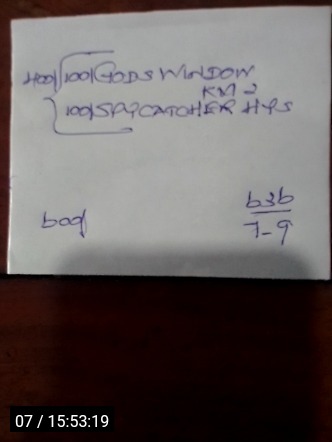 400/ 100/ GODS WINDOW
KM 2
100/ SPYCATCHER HYS
600/
636
7-9
07 / 15:53:19